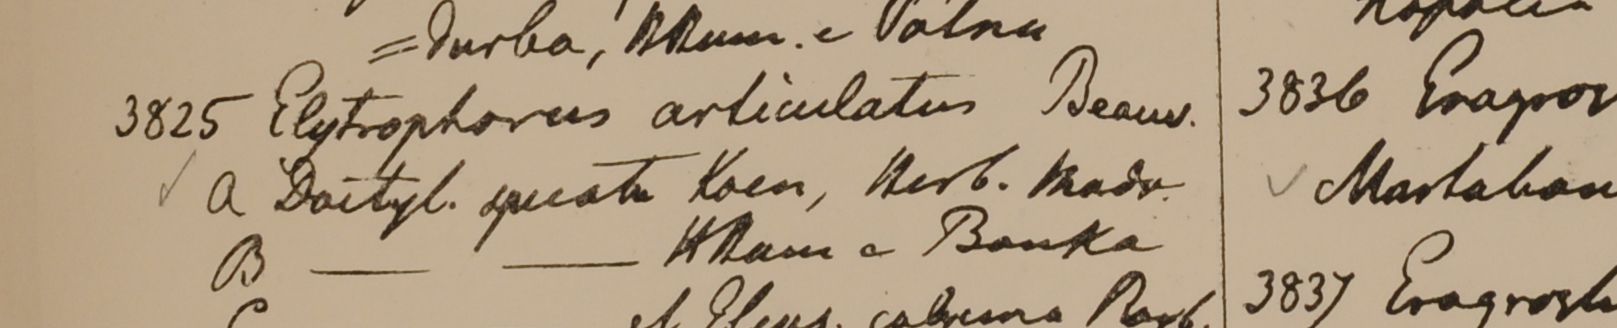 = durba, HHam. e Patna
3825 Elytrophorus articulatus Beauv.
a Dactyl. spicata Koen, Herb. Madr.
B — — HHam e Banka
et Eleus. calycina Roxb.
3836 Eragros
Martaban
3837 Eragrost